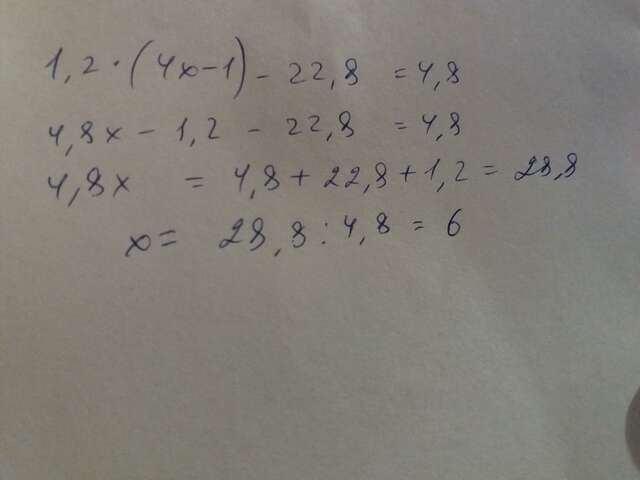 1,2·(4x-1)- 22,8 = 4,8
4,8x - 1,2 - 22,8 = 4,8
4,8x = 4,8 + 22,8 + 1,2 = 28,8
x = 28,8 : 4,8 = 6